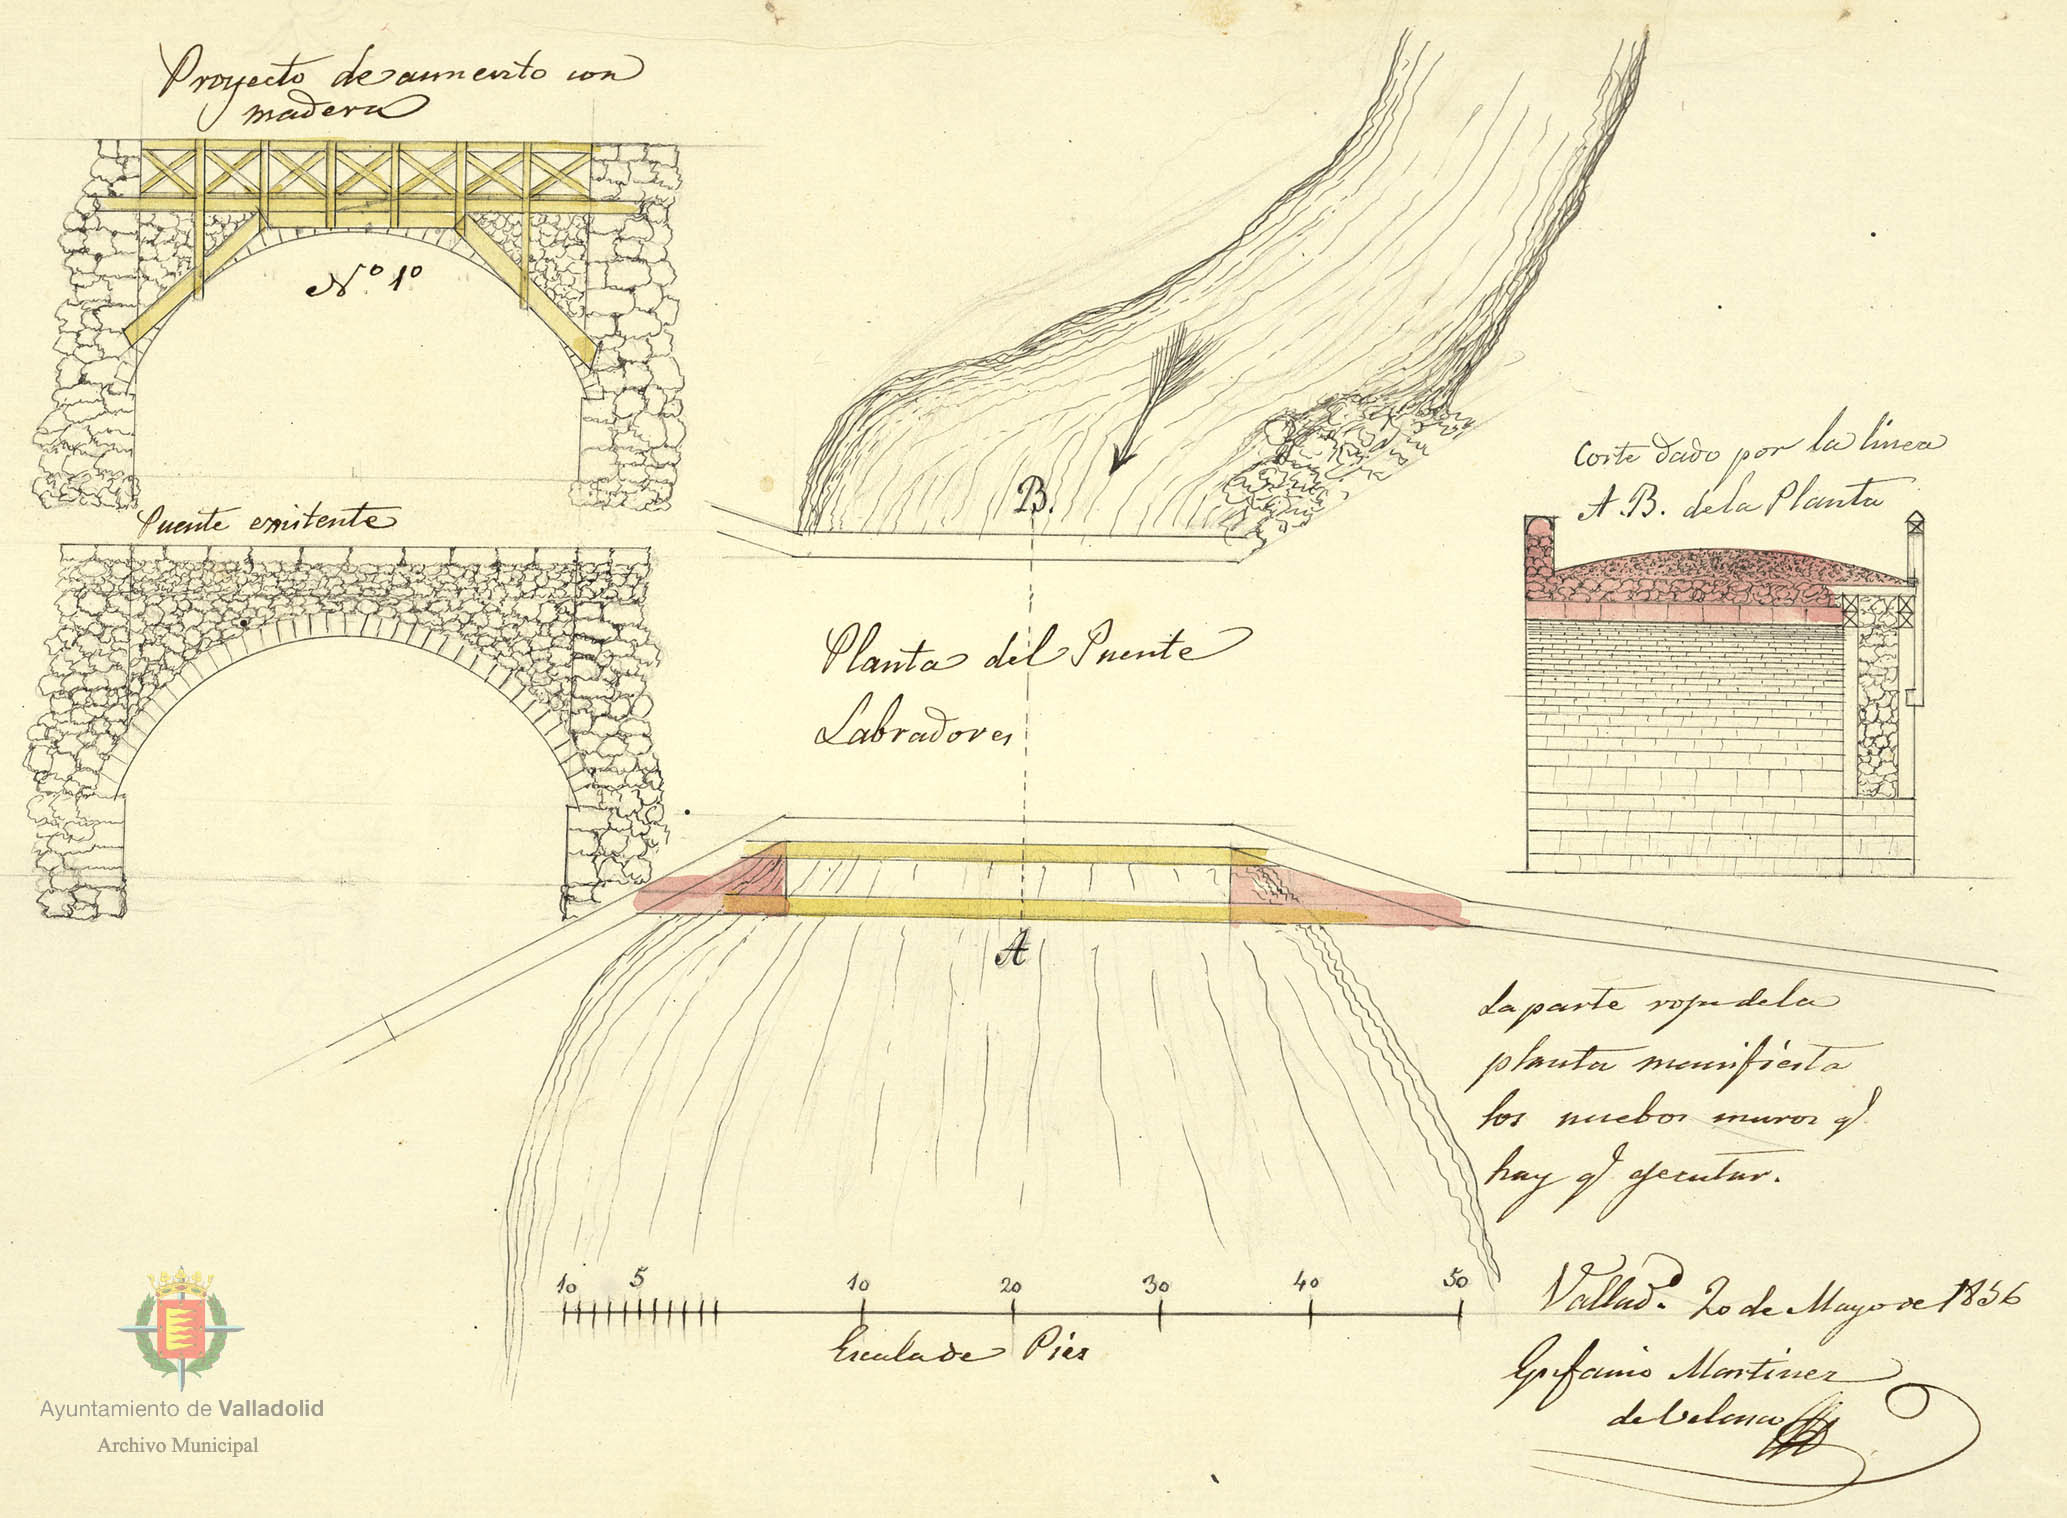 Proyecto de aumento con
madera
Nº 1º
Puente exsitente
B.
Planta del Puente
Labradores
A
Corte dado por la linea
A.B. de la Planta
La parte roja de la
planta manifiesta
los nuebos muros q.
hay q. ejecutar.
10 5 10 20 30 40 50
Escala de Pies
Vallad.º 20 de Mayo de 1856
Epifanio Martinez
de Velasco
Ayuntamiento de Valladolid
Archivo Municipal